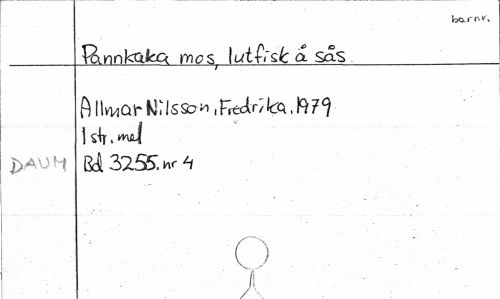 barnv.
Pannkaka mos, lutfisk å sås
Allmar Nilsson, Fredrika, 1979
1 str. mel
DAUM Bd 3255. nr 4